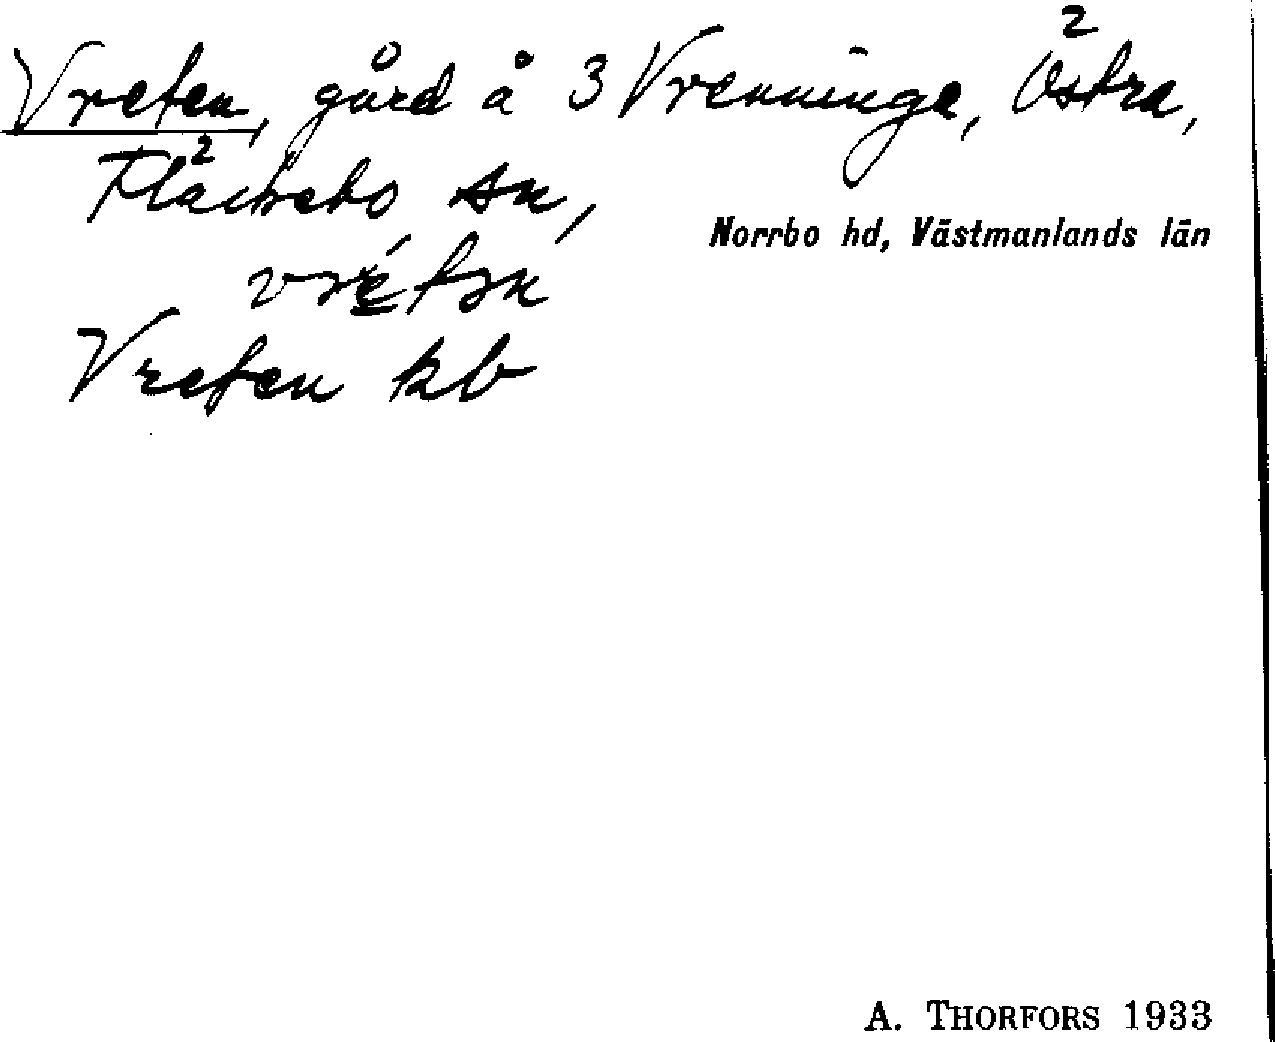 Vreten, gård å 3 Vrenninge, Östra, 2
Fläckebo sn, 2
Norrbo hd, Västmanlands län
vré̲tən
Vreten kb
A. THORFORS 1933